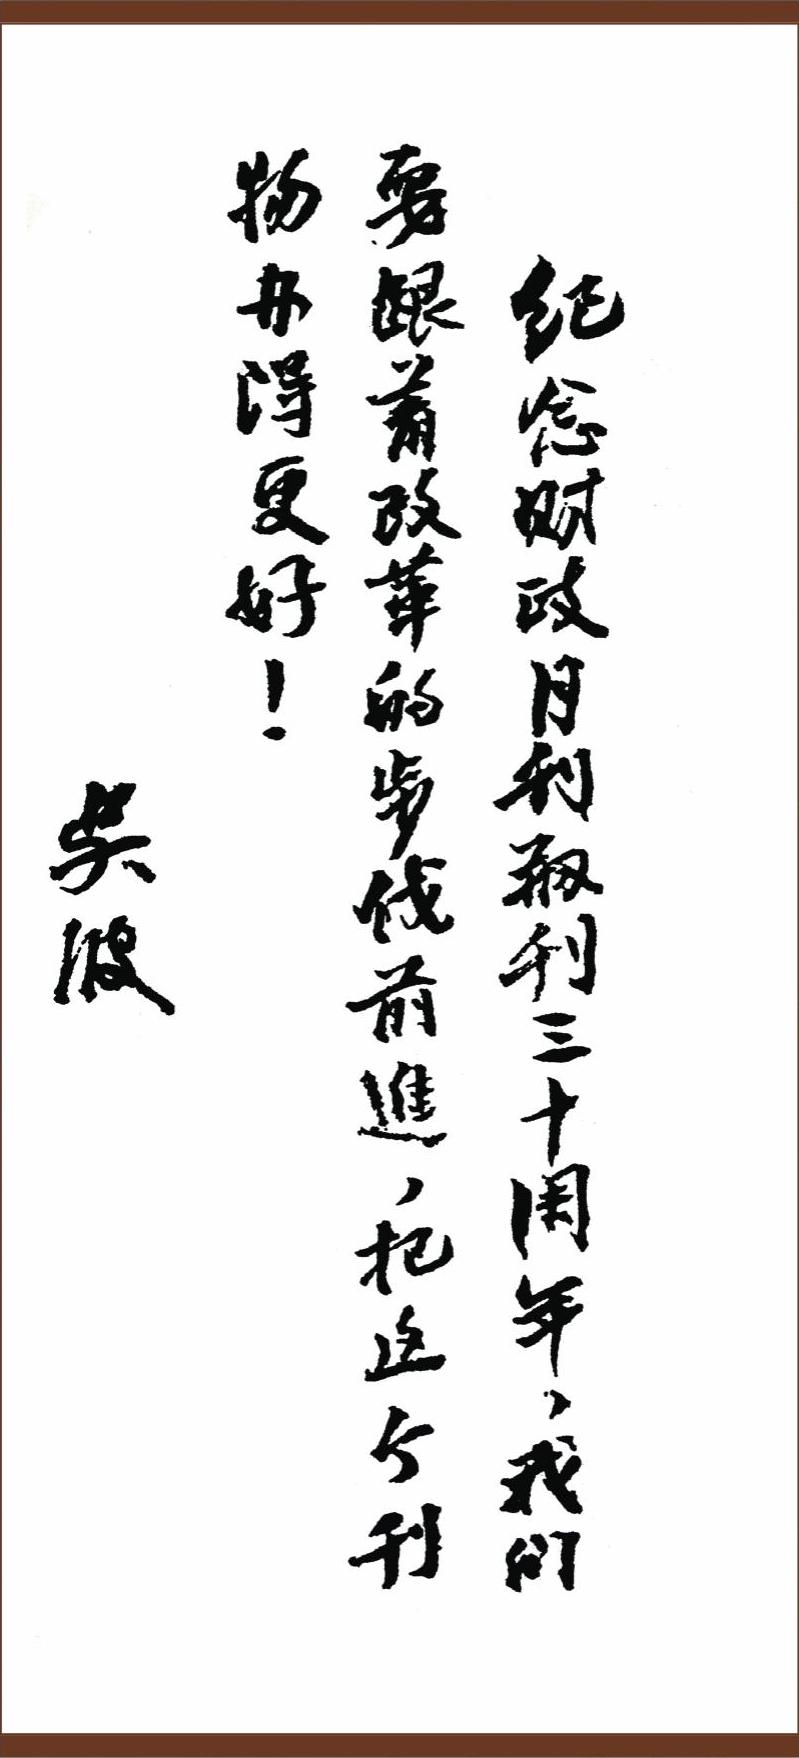 纪念财政月刊创刊三十周年，我们
要跟着改革的步伐前進，把这个刊
物办得更好！
吴波